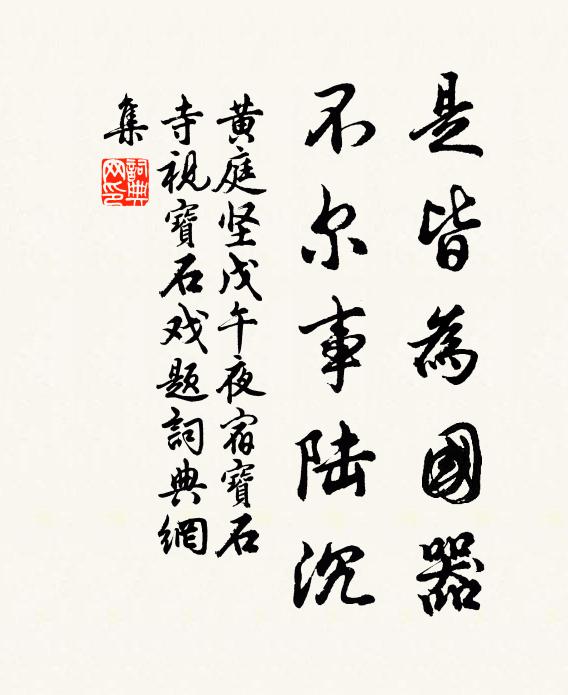 是皆為國器
不尔事陆沉
黄庭坚戊午夜宿寶石
寺視寶石戏題詞典網
集
詞典
网印